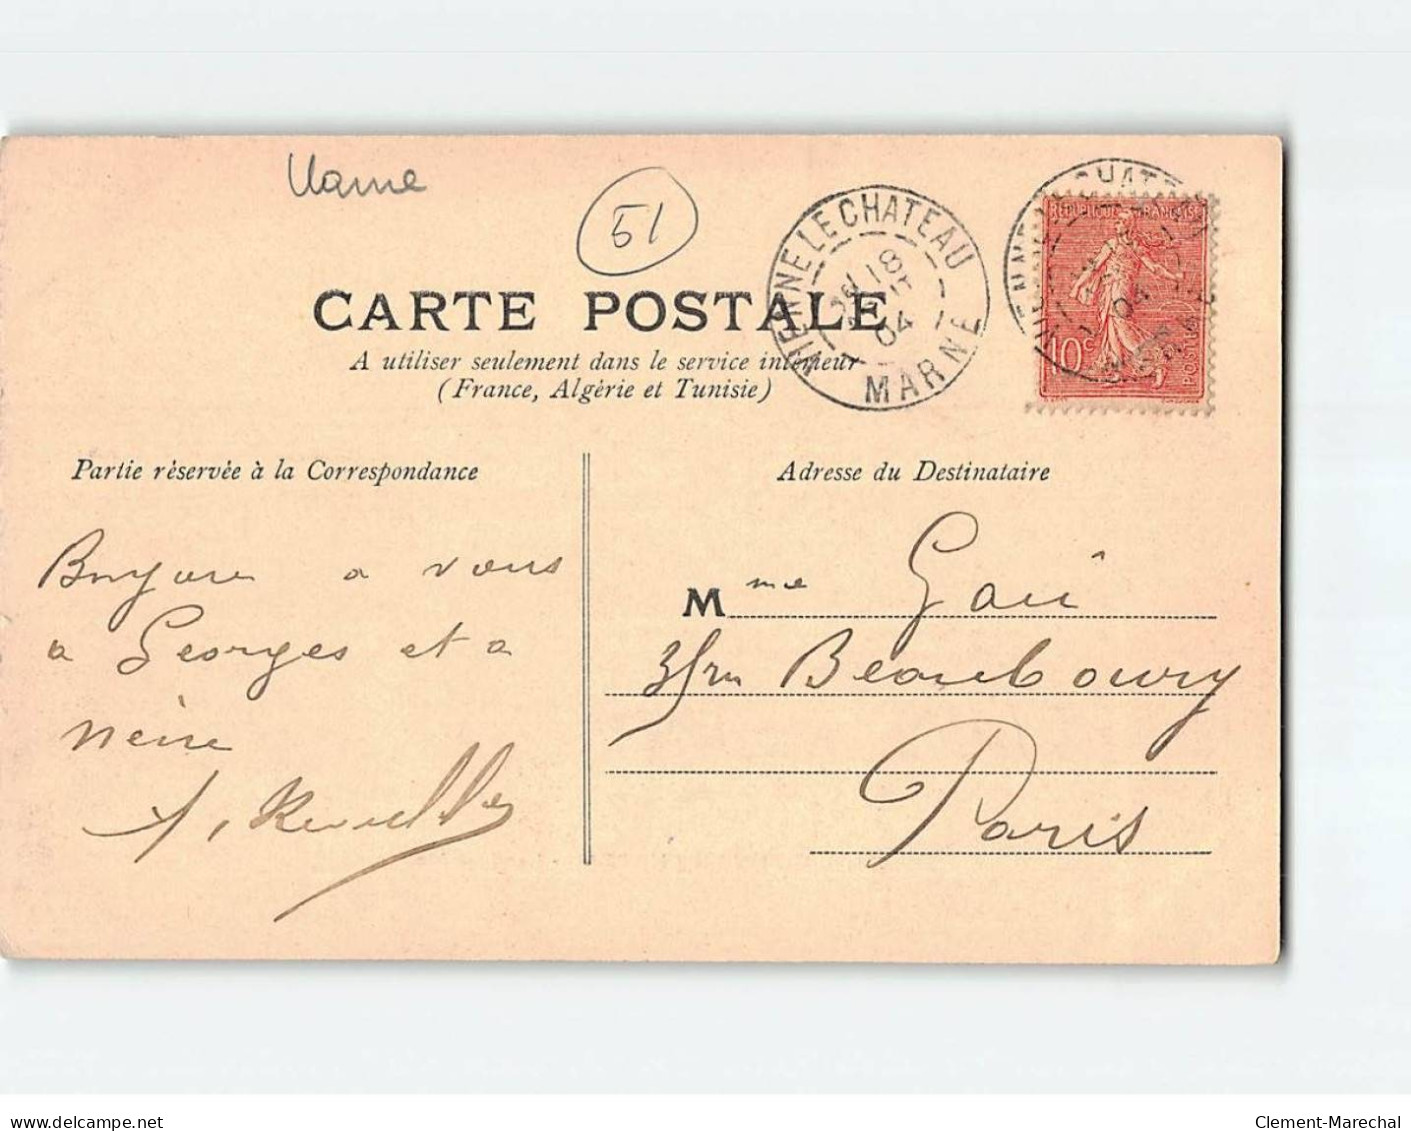 Marne
51
CARTE POSTALE
A utiliser seulement dans le service intérieur
(France, Algérie et Tunisie)
VIENNE LE CHATEAU
18
04
MARNE
REPUBLIQUE FRANÇAISE
10c
POSTES
Partie réservée à la Correspondance
Adresse du Destinataire
Bonjour a vous
a Georges et a
M me
Beaubourg
Paris
delcampe.net
Clement-Marechal